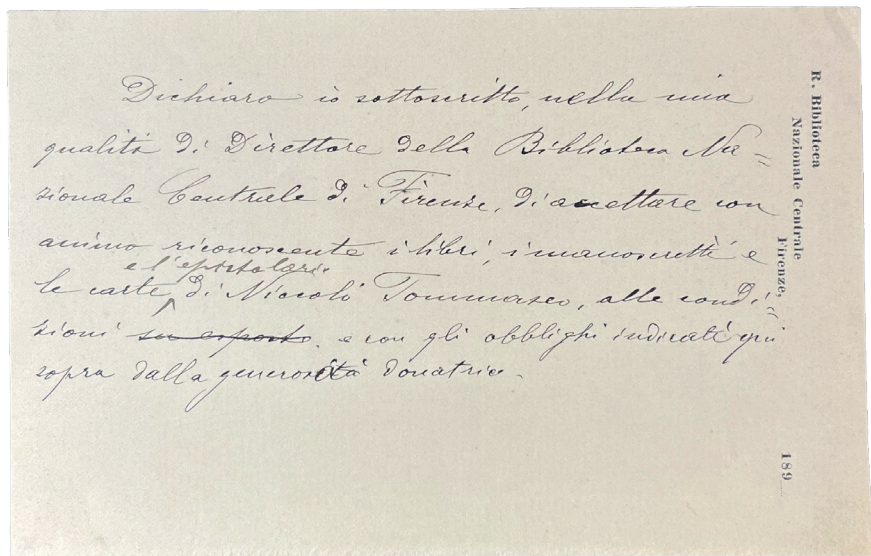 Dichiaro io sottoscritto, nella mia
qualità di Direttore della Biblioteca Na=
zionale Centrale di Firenze, di accettare con
animo riconoscente i libri, i manoscritti e
e l'epistolario
le carte di Niccolò Tommaseo, alle condi=
zioni su esposte, e con gli obblighi indicati qui
sopra dalla generosità donatrice.
R. Biblioteca
Nazionale Centrale
Firenze,
189